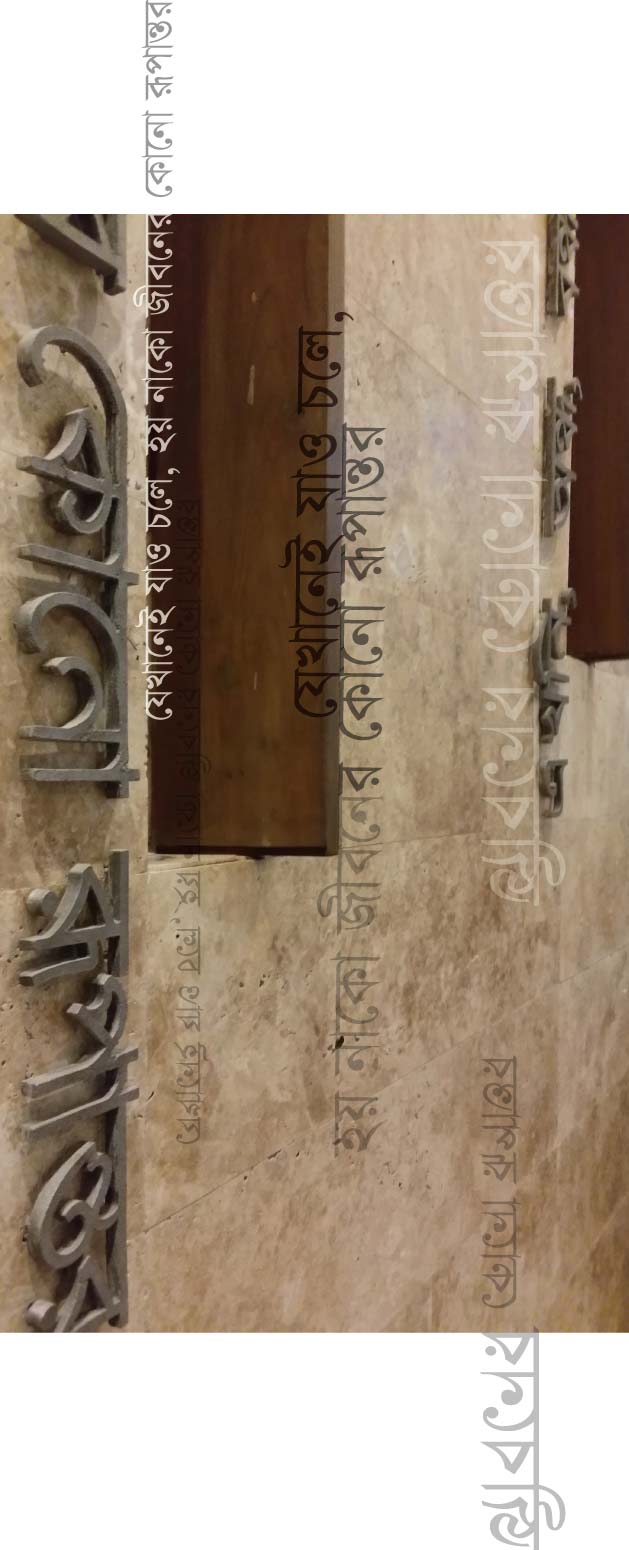 কোনো রূপান্তর
যেখানেই যাও চলে, হয় নাকো জীবনের কোনো রূপান্তর
যেখানেই যাও চলে, হয় নাকো জীবনের কোনো রূপান্তর
যেখানেই যাও চলে,
হয় নাকো জীবনের কোনো রূপান্তর
জীবনের কোনো রূপান্তর
জীবনের কোনো রূপান্তর